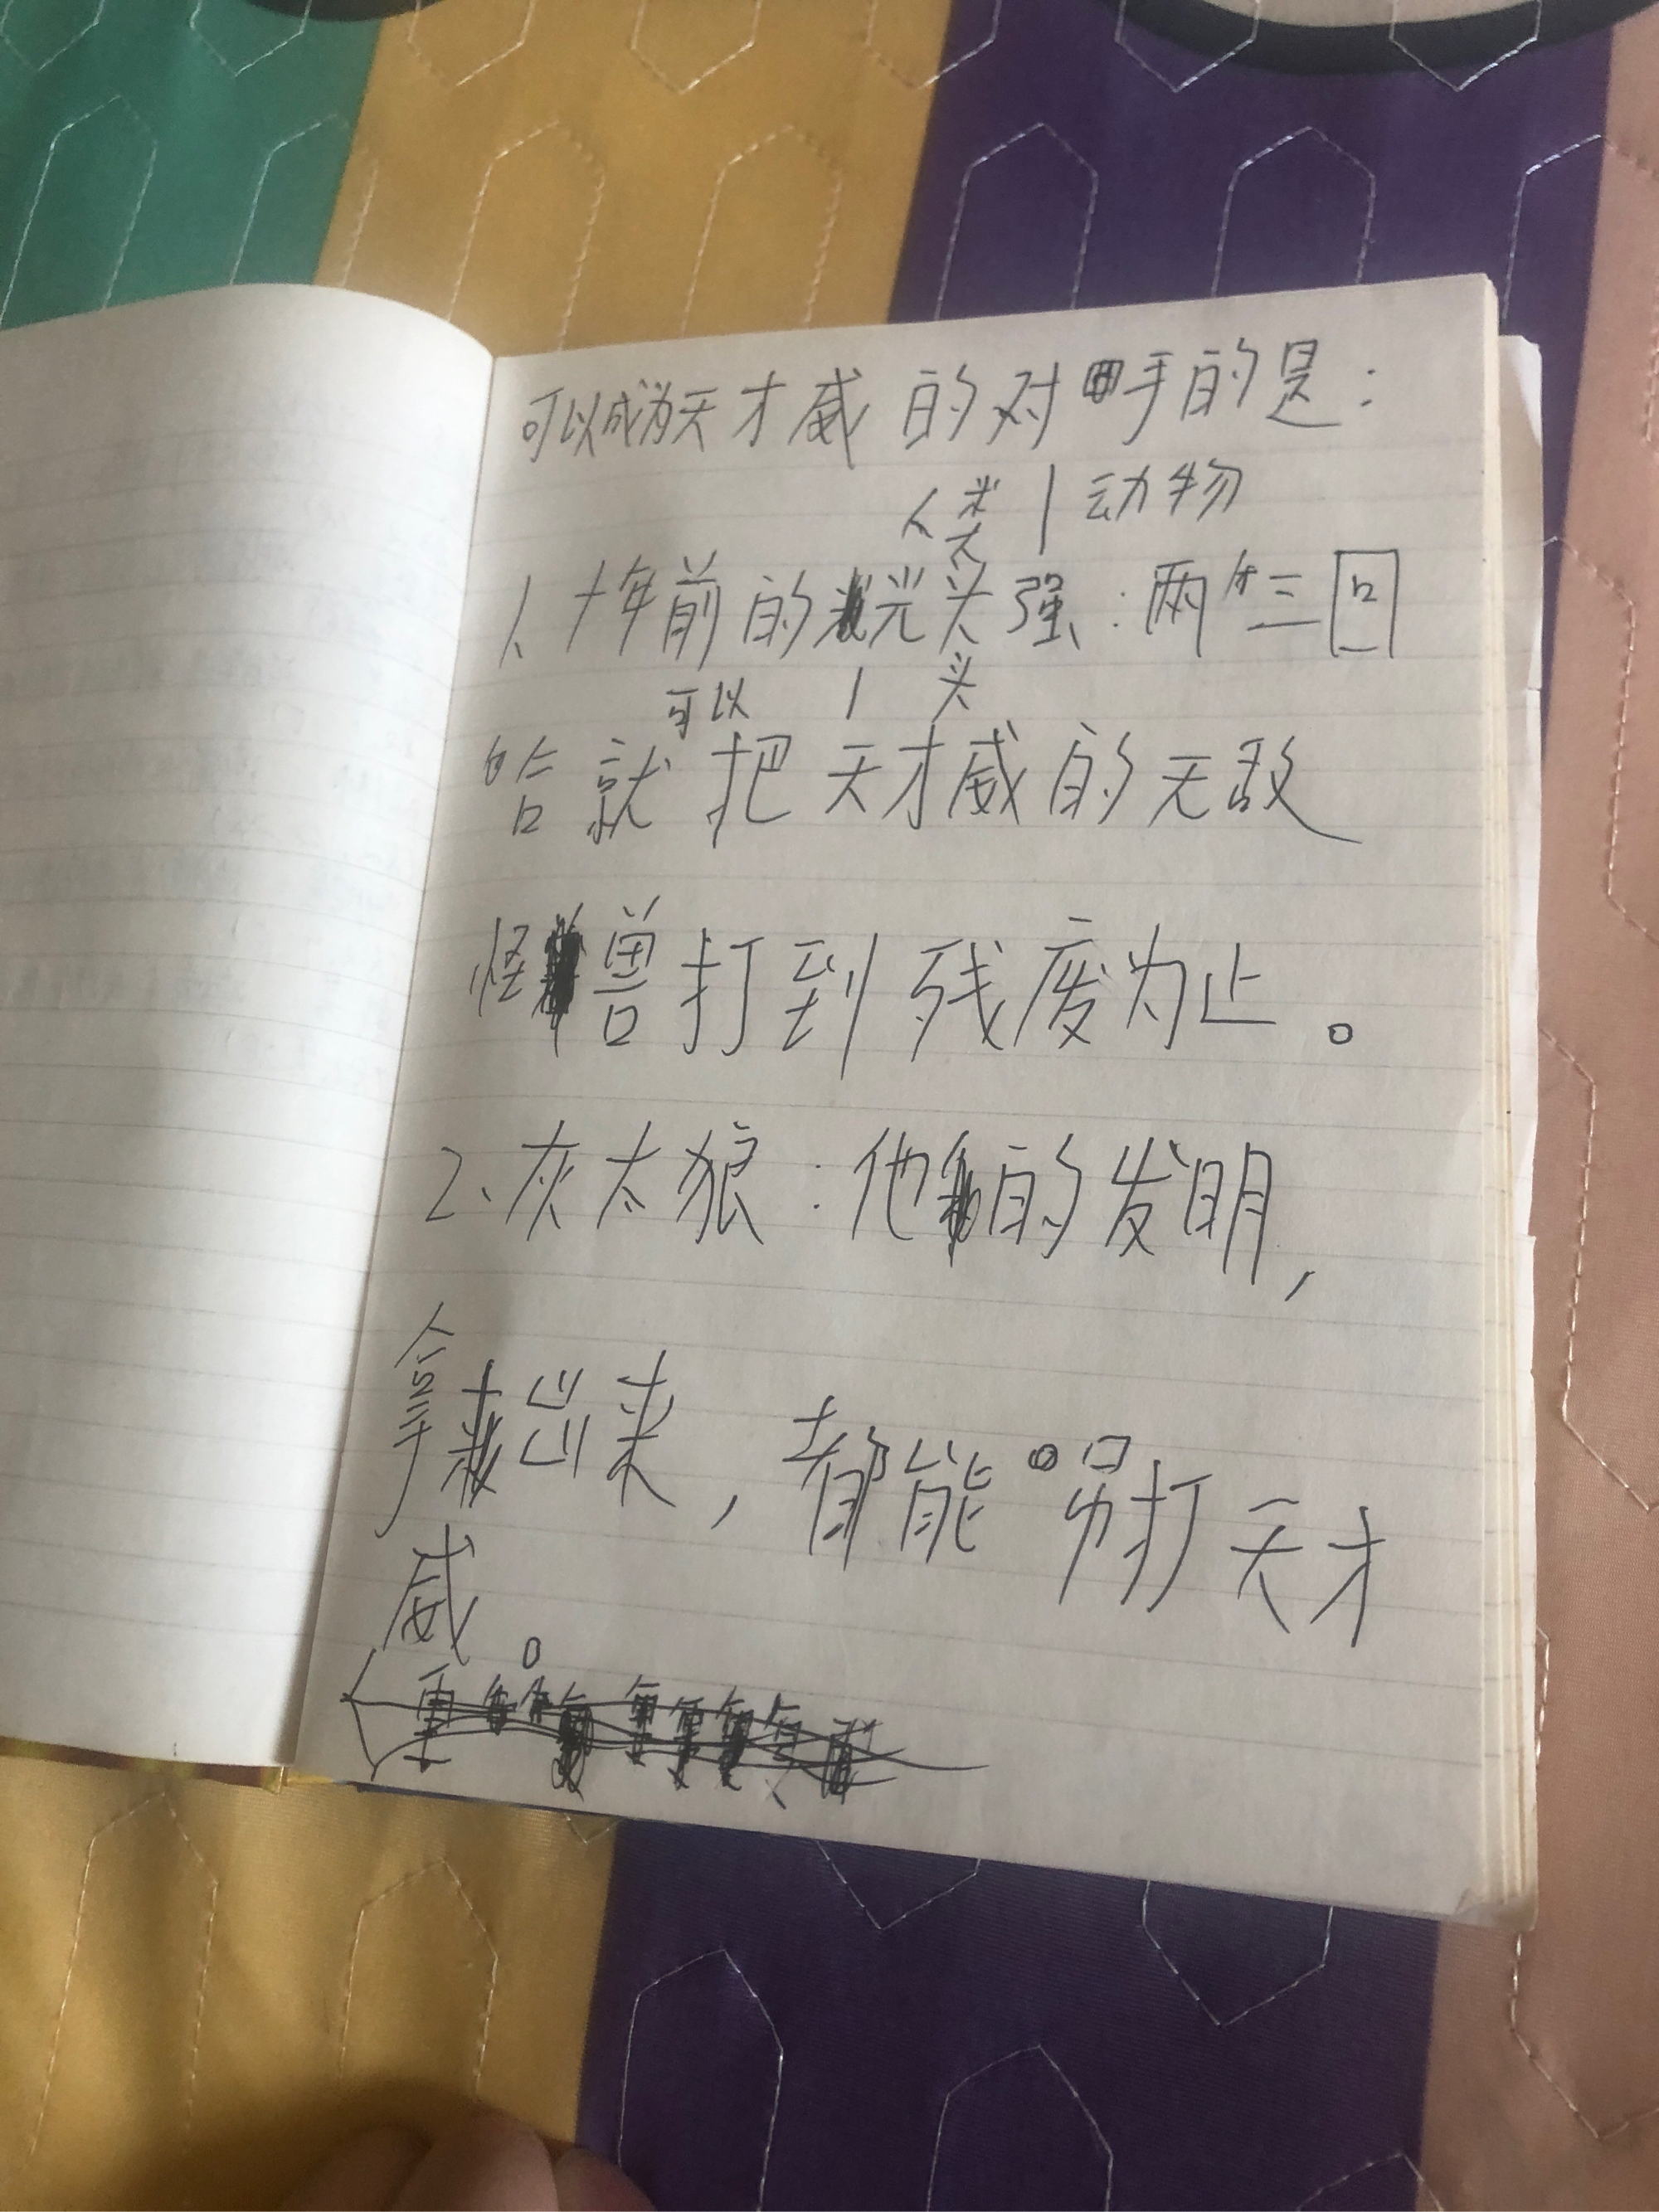 可以成为天才威的对手的是：
人类|动物
1、十年前的光头强：两三回
可以 | 头
哈就把天才威的无敌
怪兽打到残废为止。
2、灰太狼：他的发明，
拿出来，都能吊打天才
威。